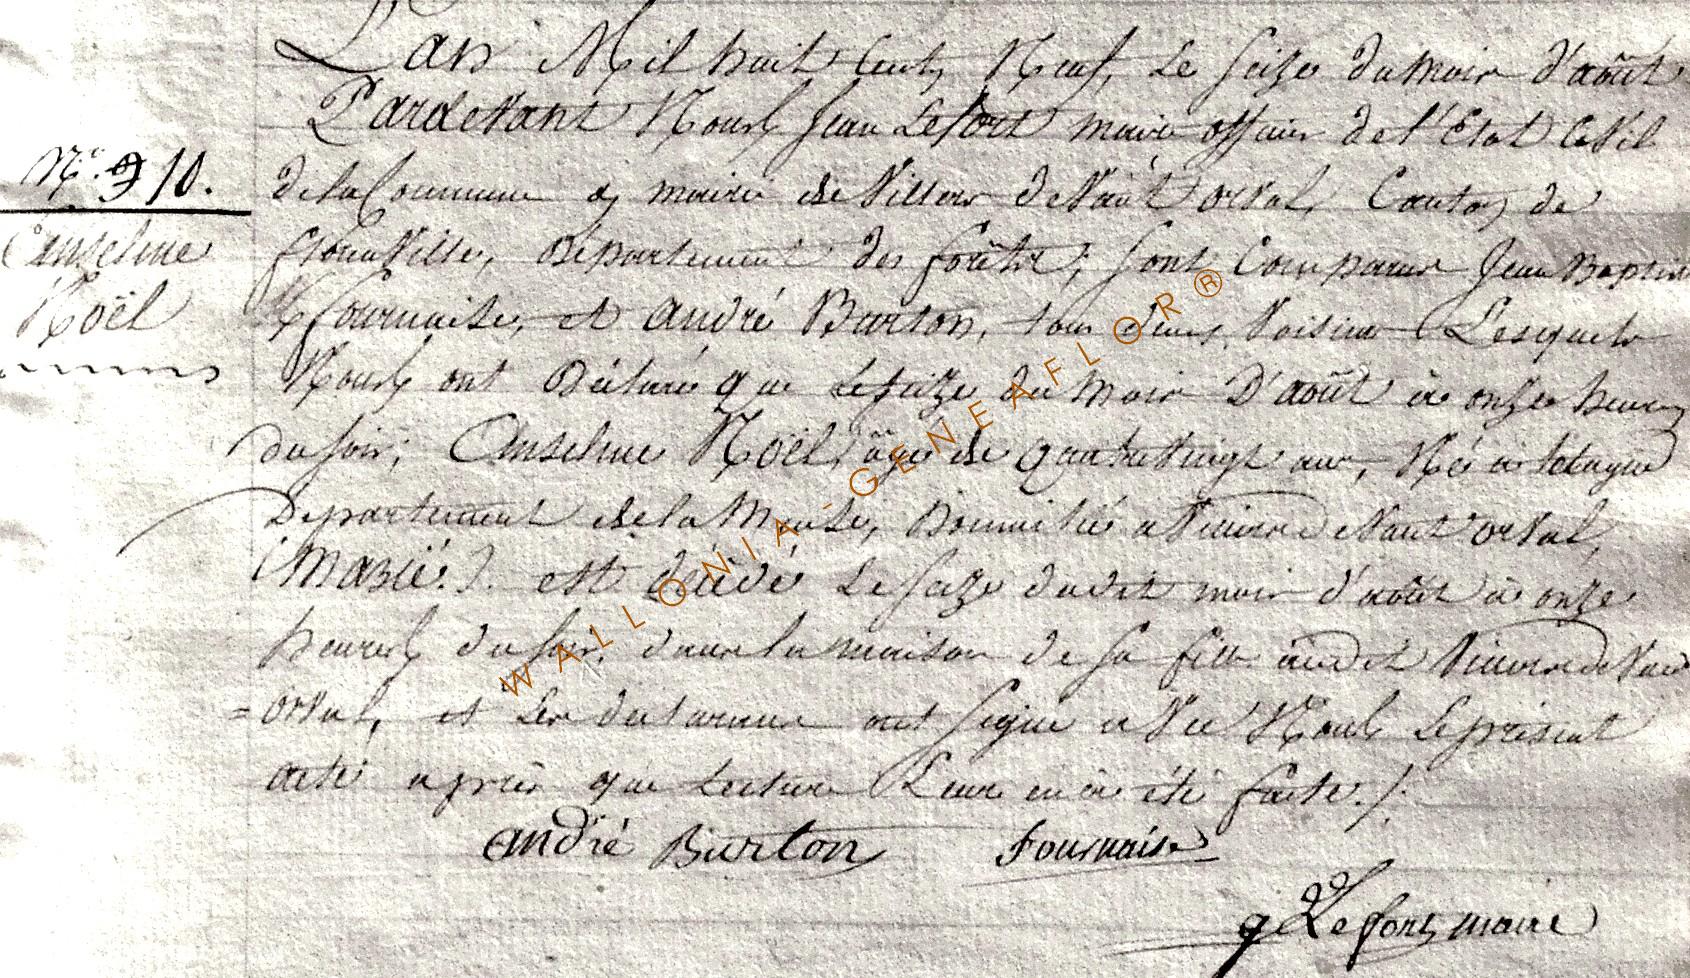 L'an Mil huit Cents Neuf, Le Seize du mois d'août
Pardevant Nous Jean Lefort maire officier de l'Etat Civil
N.º 10.
de la Commune et mairie de Villers devant orval, Canton de
Anselme
florenville, Département des forêts, sont Comparus Jean Baptiste
Noël
fournaise, et André Burton, tous deux Voisins Lesquels
Nous ont Déclaré que le seize du mois D'août à onze heures
du soir, Anselme Noël, âgé de quatre Vingt ans, Né à
Département de la Meuse, Domicilié a Villers devant orval,
(Marié.) est décédé Le seize dudit mois d'août à onze
heures du soir, dans la maison de sa fille audit Villers devant
=orval, et Les déclarants ont signé avec Nous Le présent
acte après que Lecture Leur en a été faite./.
André Burton fournaise
Lefort maire
WALLONIA-GENEAFLOR®